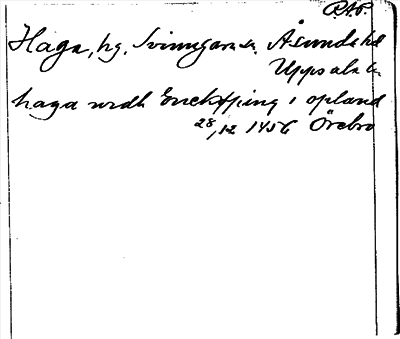 R.A.P.
Haga, hg. Svinnegarns sn. Åsunda hd
Uppsala l.
haga widh Enekøping i opland
28/12 1456 Örebro